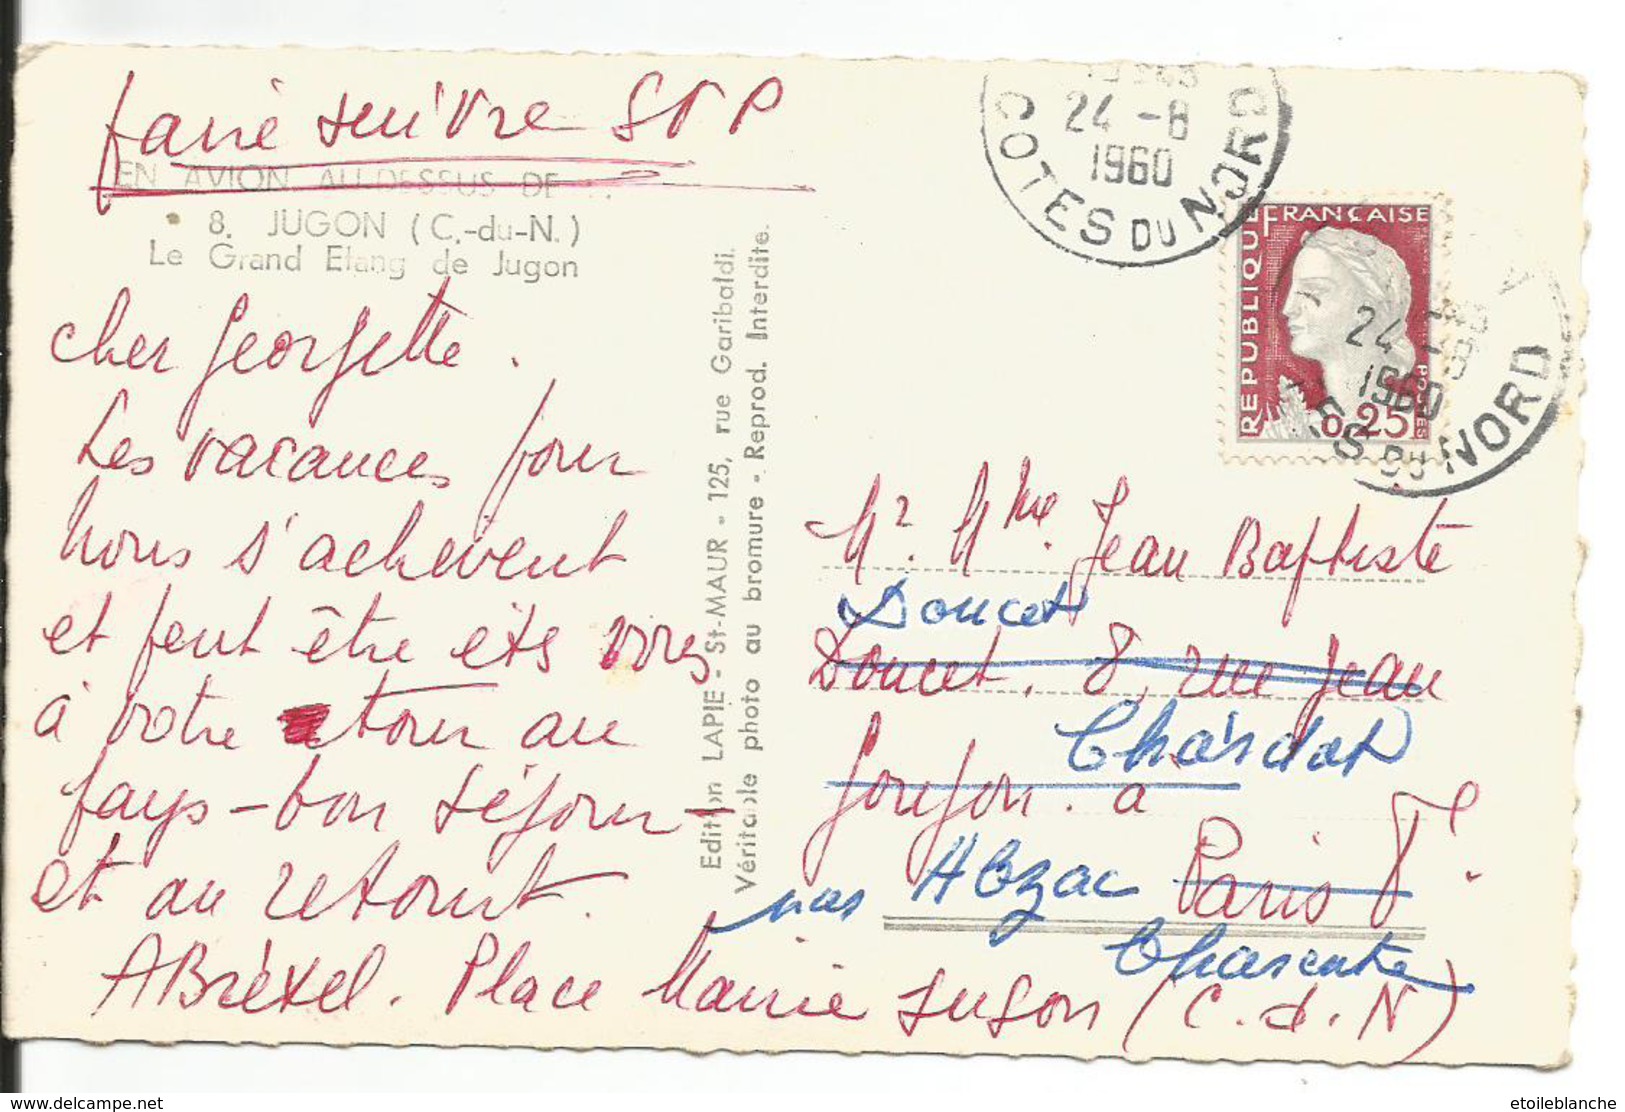 faire suivre SVP
EN AVION AU-DESSUS DE ...
8. JUGON (C.-du-N.)
Le Grand Etang de Jugon
cher Georgette.
Les vacances pour
nous s'achèvent
et peut être êts vous
à votre retour au
pays - bon séjour
et au retour.
ABrétel. Place Mairie Jugon (C. d. N)
Edition LAPIE - St-MAUR - 125, rue Garibaldi.
Véritable photo au bromure - Reprod. Interdite.
24 -8
1960
COTES DU NORD
REPUBLIQUE FRANCAISE
POSTES
0,25
24 -8
1960
DU NORD
Mr. Mme. Jean Baptiste
Doucet
Doucet. 8, rue Jean
Chardat
Goujon. à
par Abzac Paris 8e.
Charente
delcampe.net
etoileblanche